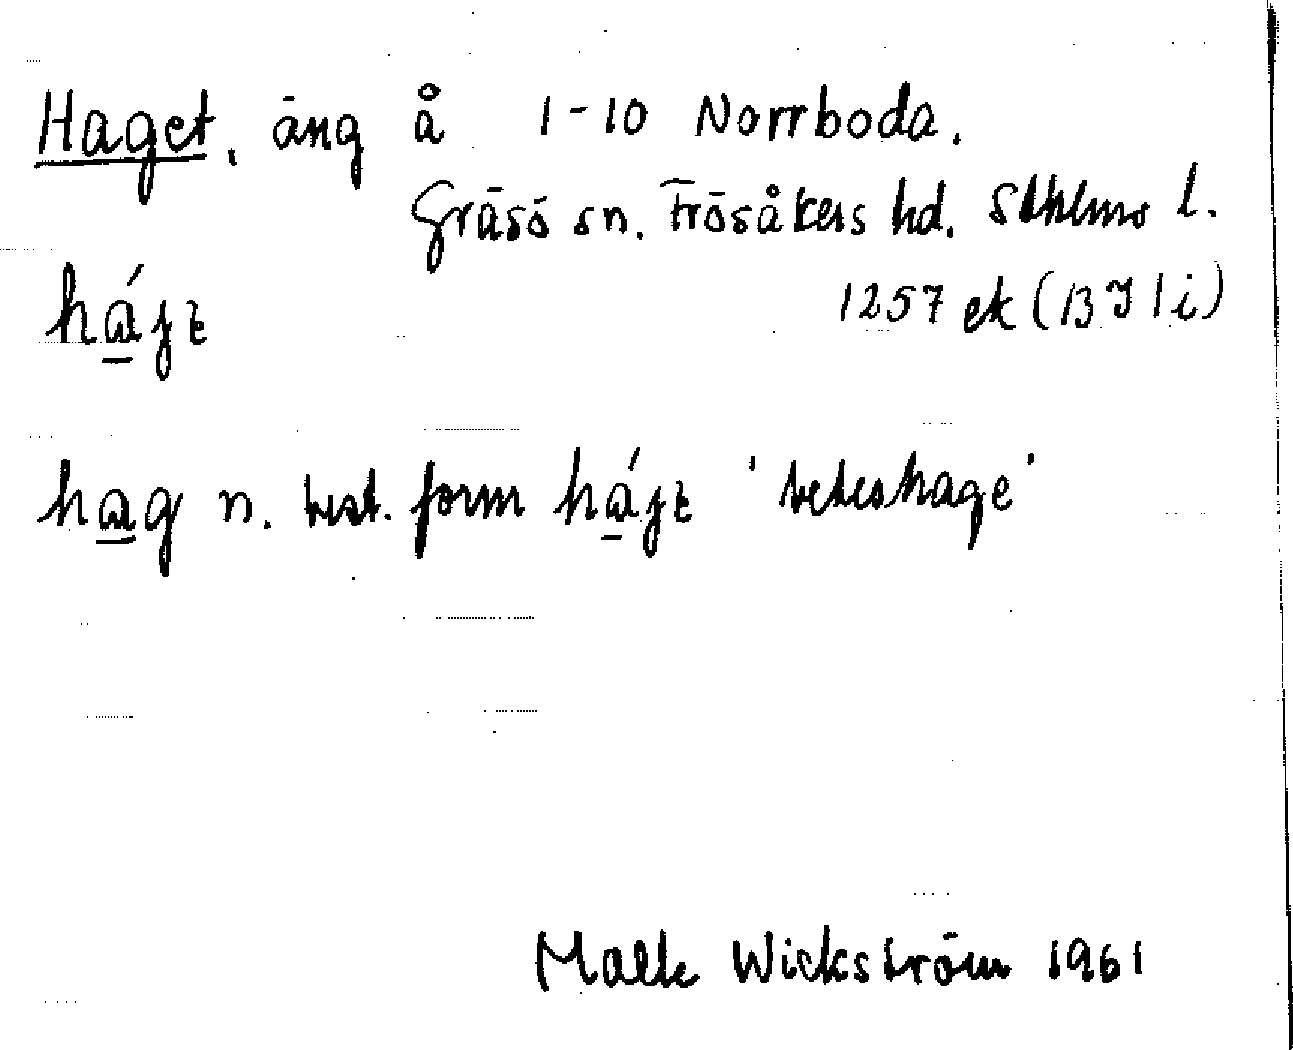 Haget, äng å 1-10 Norrboda.
Gräsö sn. Frösåkers hd. Sthlms l.
há̱jt
1257 ek (13I 1i)
ha̱g n. best. form há̱jt 'beteshage'
Malte Wickström 1961